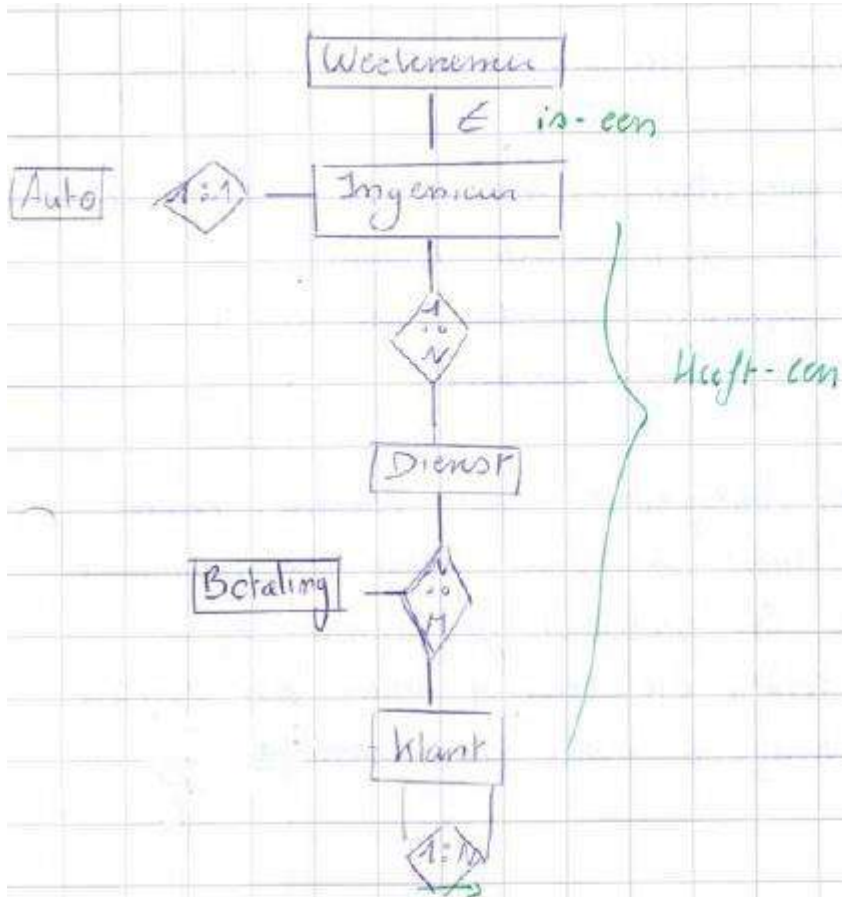 Werknemer
E is-een
Auto
1:1
Ingenieur
1
:
N
Heeft-een
Dienst
N
:
M
Betaling
Klant
1:N